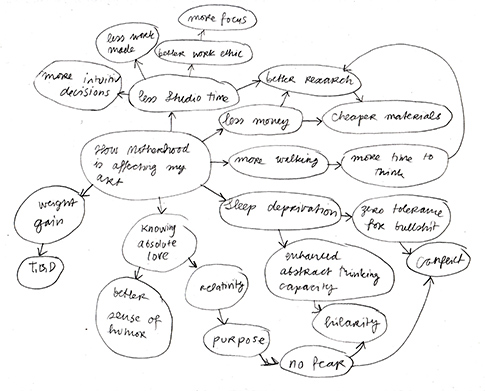 more focus
less work
made
better work ethic
more intuitiv
decisions
less studio time
better research
less money
cheaper materials
How Motherhood
is affecting my
art
more walking
more time to
think
weight
gain
T.B.D
knowing
absolute
love
sleep deprivation
zero tolerance
for bullshit
conflict
enhanced
abstract thinking
capacity
better
sense of
humor
relativity
hilarity
purpose
no fear